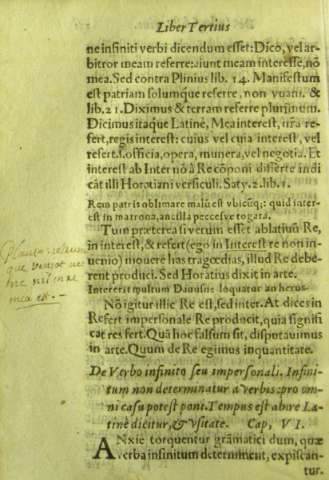 Liber Tertius
ne infiniti verbi dicendum esset: Dico, vel ar-
bitror meam referre: aiunt meam interesse, nõ
mea. Sed contra Plinius lib. 14. Manifestum
est patriam solumque referre, non vuam. &
lib. 21. Diximus & terram referre plurimum.
Dicimus itaque Latinè, Mea interest, nr̃a re-
fert, regis interest: cuius vel cuia interest, vel
refert. s. officia, opera, munera, vel negotia. Et
interest ab Inter nõ à Re cõponi disserte indi
cãt illi Horatiani versiculi. Saty. 2. lib. 1.
Rem patris oblimare malũ est vbicũq;: quid inter-
est in matrona, ancilla peccesve togata.
Tum præterea si verum esset ablatiuũ Re,
in interest, & refert (ego in Interest re non in-
uenio) mouere has tragœdias, illud Re debe-
rent produci. Sed Horatius dixit in arte.
Intererit multum Dauusne loquatur an heros.
Nõ igitur illic Re est, sed inter. At dices in
Refert impersonale Re producit, quia signifi
cat res fert. Quã hoc falsum sit, disputauimus
in arte. Quum de Re egimus in quantitate.
De Verbo infinito seu impersonali. Infini-
tum non determinatur à verbis: pro om-
ni casu potest poni. Tempus est abire La-
tinè dicitur, & vsitate. Cap, VI.
ANxie torquentur grãmatici dum, quæ
verba infinitum determinent, expiscan-
tur.
mea est. -